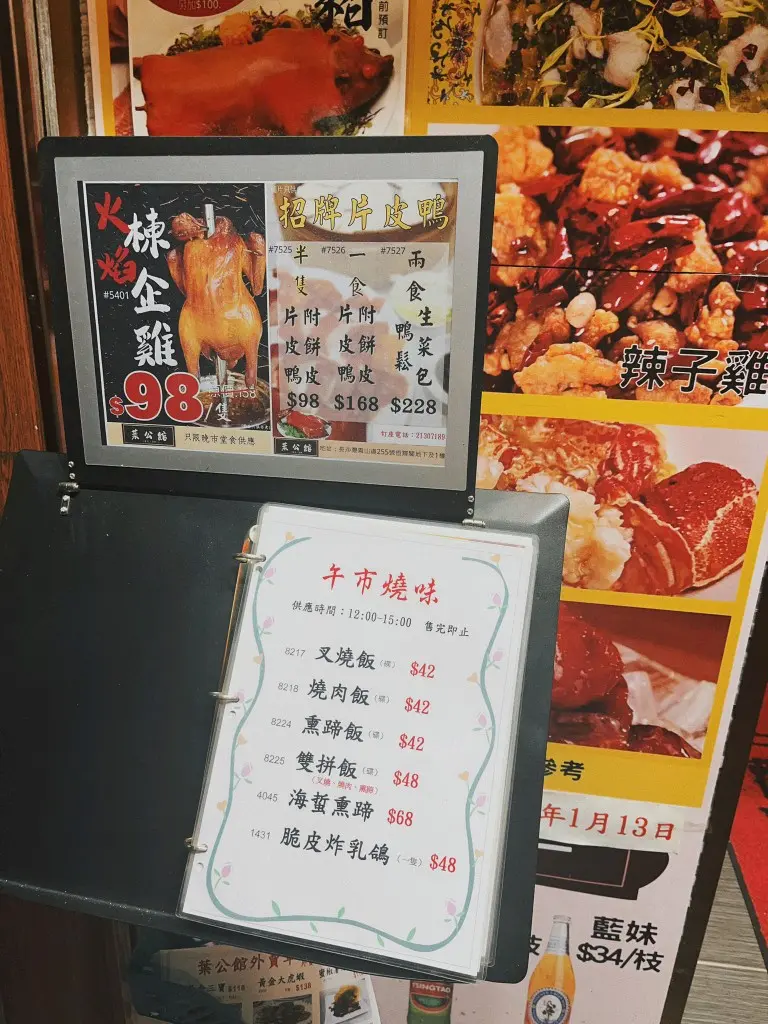 附加$100.
前預訂
火焰
棟企雞
#5401
$98/隻
只限晚市堂食供應
葉公館
招牌片皮鴨
#7525 #7526 #7527
半隻片皮鴨 附餅皮 $98
一食片皮鴨 附餅皮 $168
兩食 鴨鬆生菜包 $228
訂座電話：21307189
葉公館
辣子雞
午市燒味
供應時間：12:00-15:00 售完即止
8217 叉燒飯（碟） $42
8218 燒肉飯（碟） $42
8224 熏蹄飯（碟） $42
8225 雙拼飯（碟） $48
（叉燒、燒肉、熏蹄）
4045 海蜇熏蹄 $68
1431 脆皮炸乳鴿（一隻） $48
參考
年1月13日
藍妹
$34/枝
枝
TSINGTAO
葉公館外賣
黃金大虎蝦
$118
$138